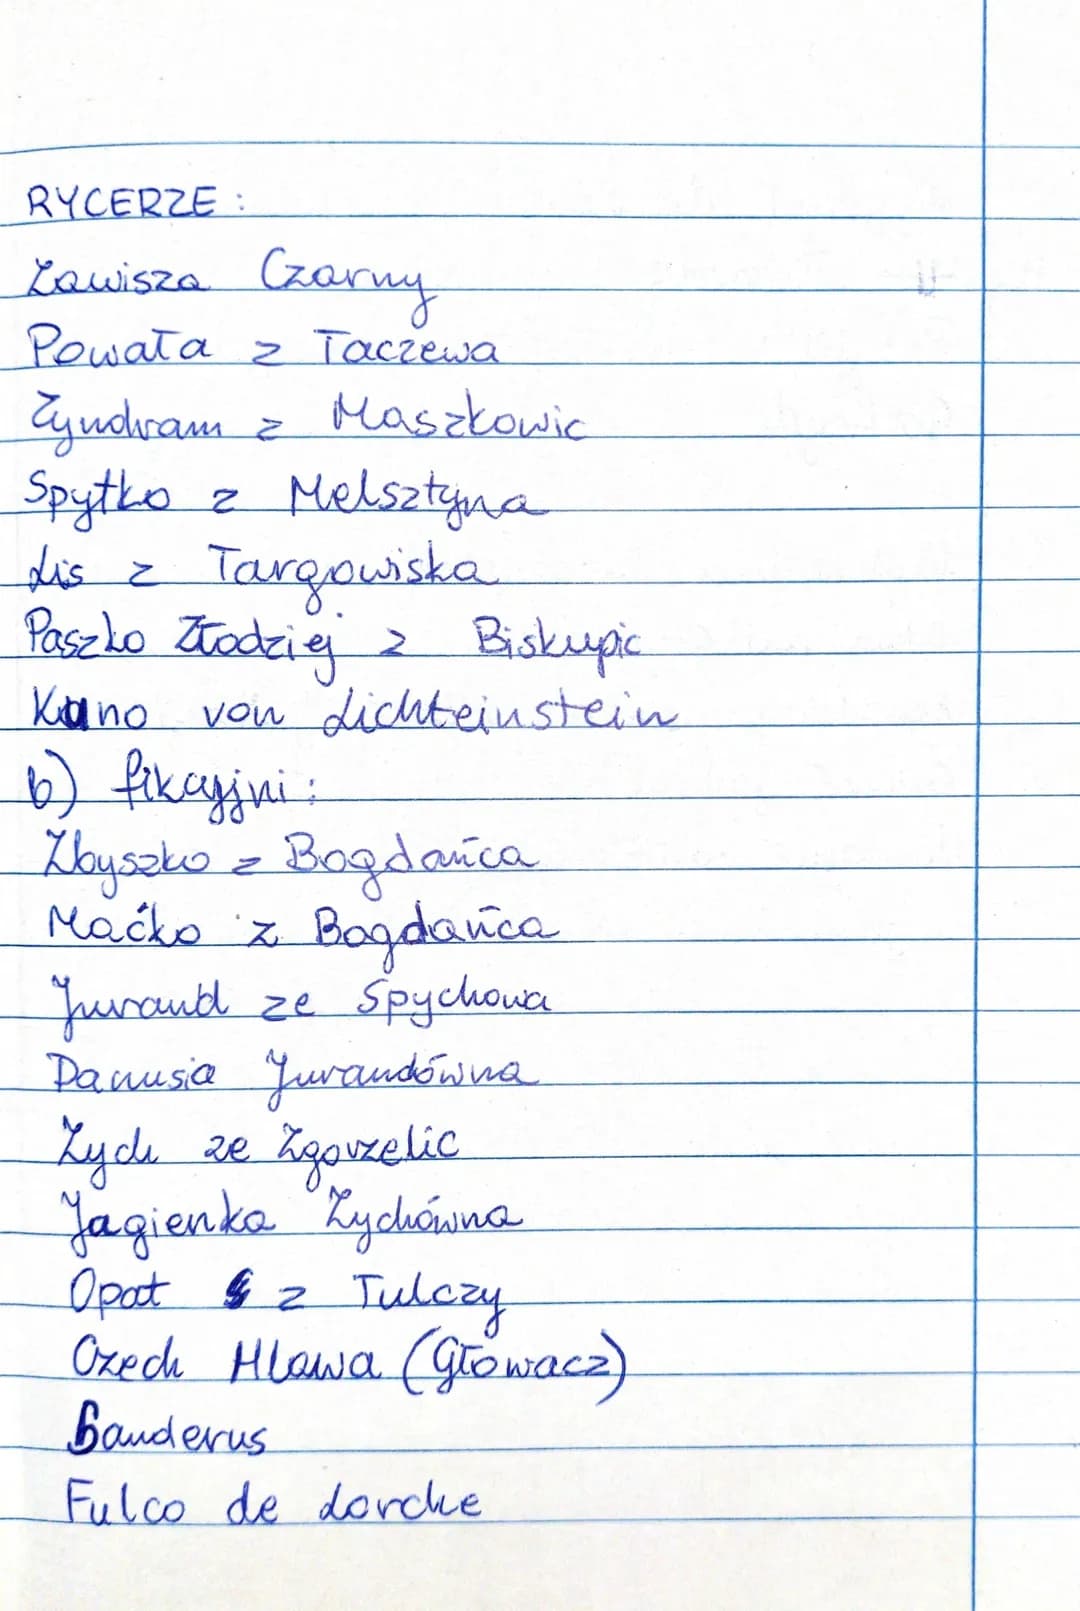 RYCERZE :
Zawisza Czarny
Powała z Taczewa
Zyndram z Maszkowic
Spytko z Melsztyna
Lis z Targowiska
Paszko Złodziej z Biskupic
Kuno von Lichteinstein
b) fikcyjni :
Zbyszko z Bogdańca
Maćko z Bogdańca
Jurand ze Spychowa
Danusia Jurandówna
Zych ze Zgorzelic
Jagienka Zychówna
Opat z Tulczy
Czech Hlawa (Głowacz)
Sanderus
Fulco de Lorche